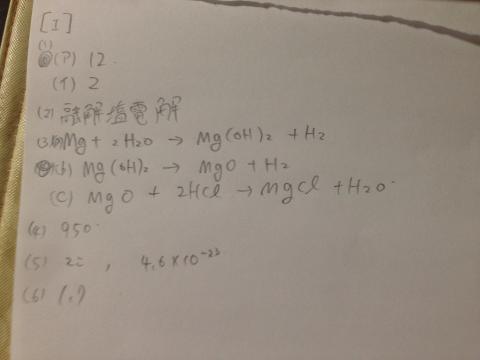 [I]
(1) (ア) 12.
(イ) 2
(2) 融解塩電解
(3) (a) Mg + 2H₂O → Mg(OH)₂ + H₂
(b) Mg(OH)₂ → MgO + H₂
(C) MgO + 2HCl → MgCl + H₂O
(4) 950
(5) 2 , 4.6×10⁻²³
(6) 1.7